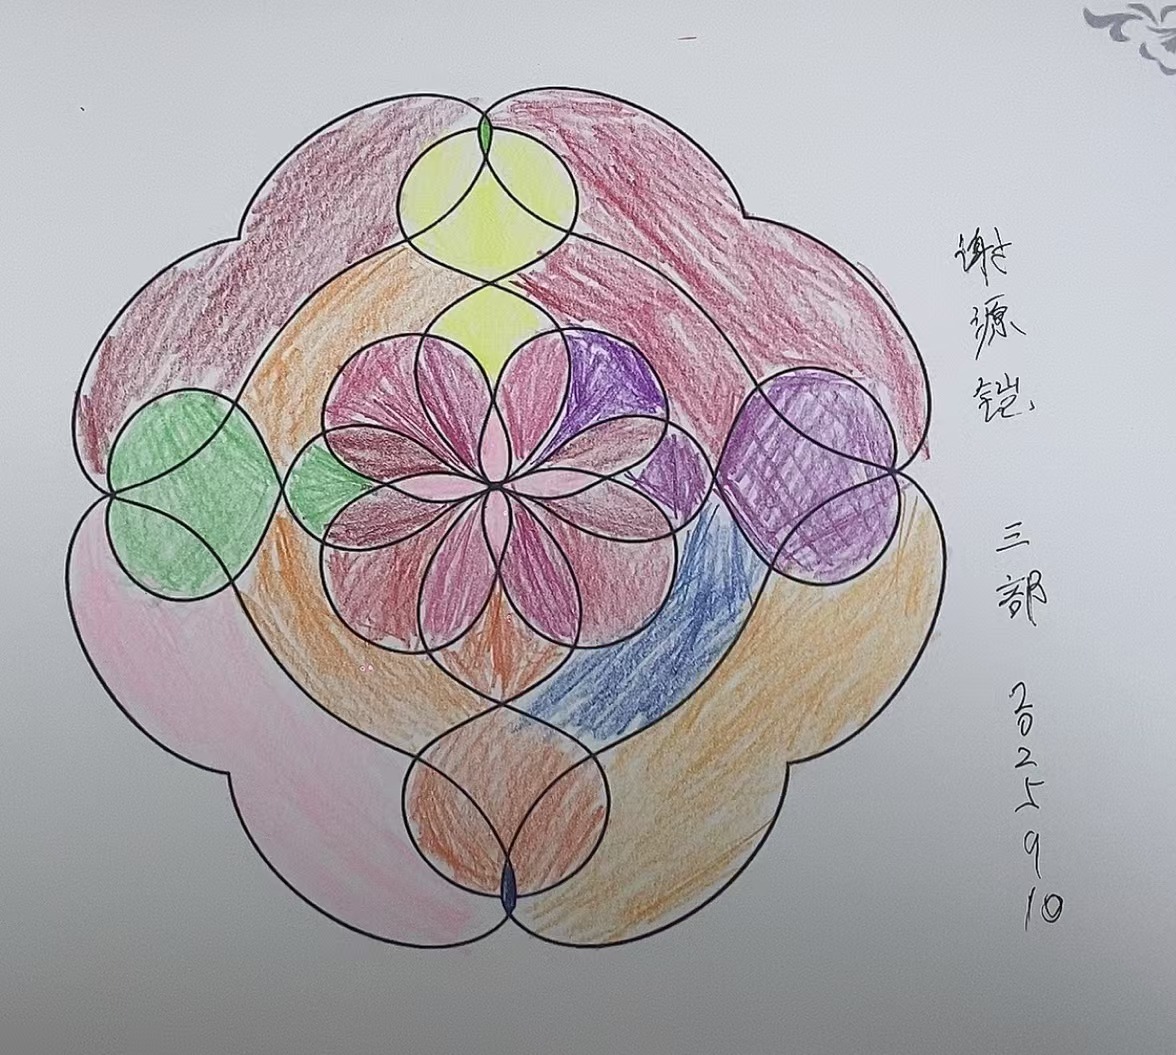 谢源铠
三部
2025 9 10